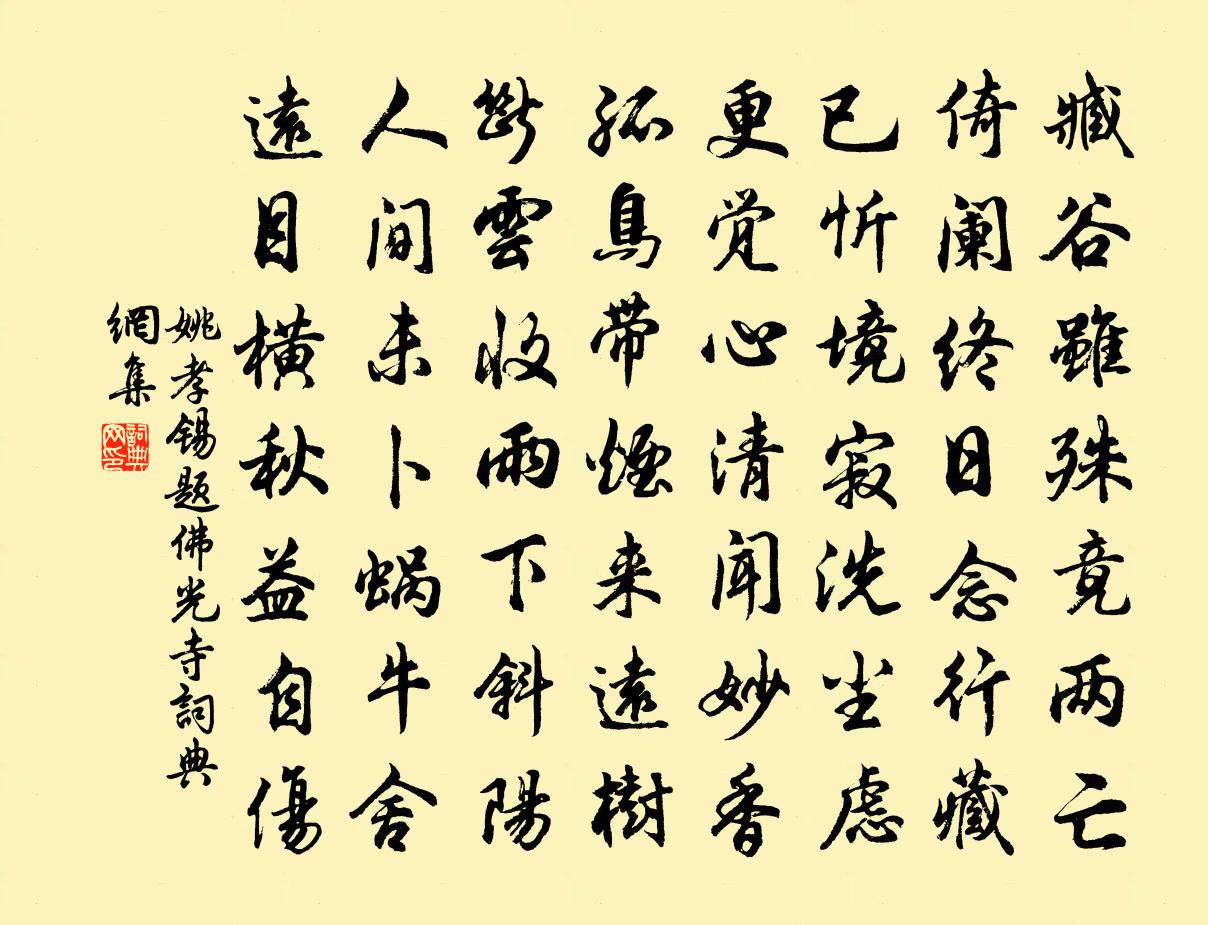 臧谷雖殊竟两亡
倚阑终日念行藏
已忻境寂洗尘慮
更觉心清闻妙香
孤鳥带煙来遠樹
斷雲收雨下斜陽
人间未卜蜗牛舍
遠目横秋益自傷
姚孝锡题佛光寺詞典
網集
詞典网印